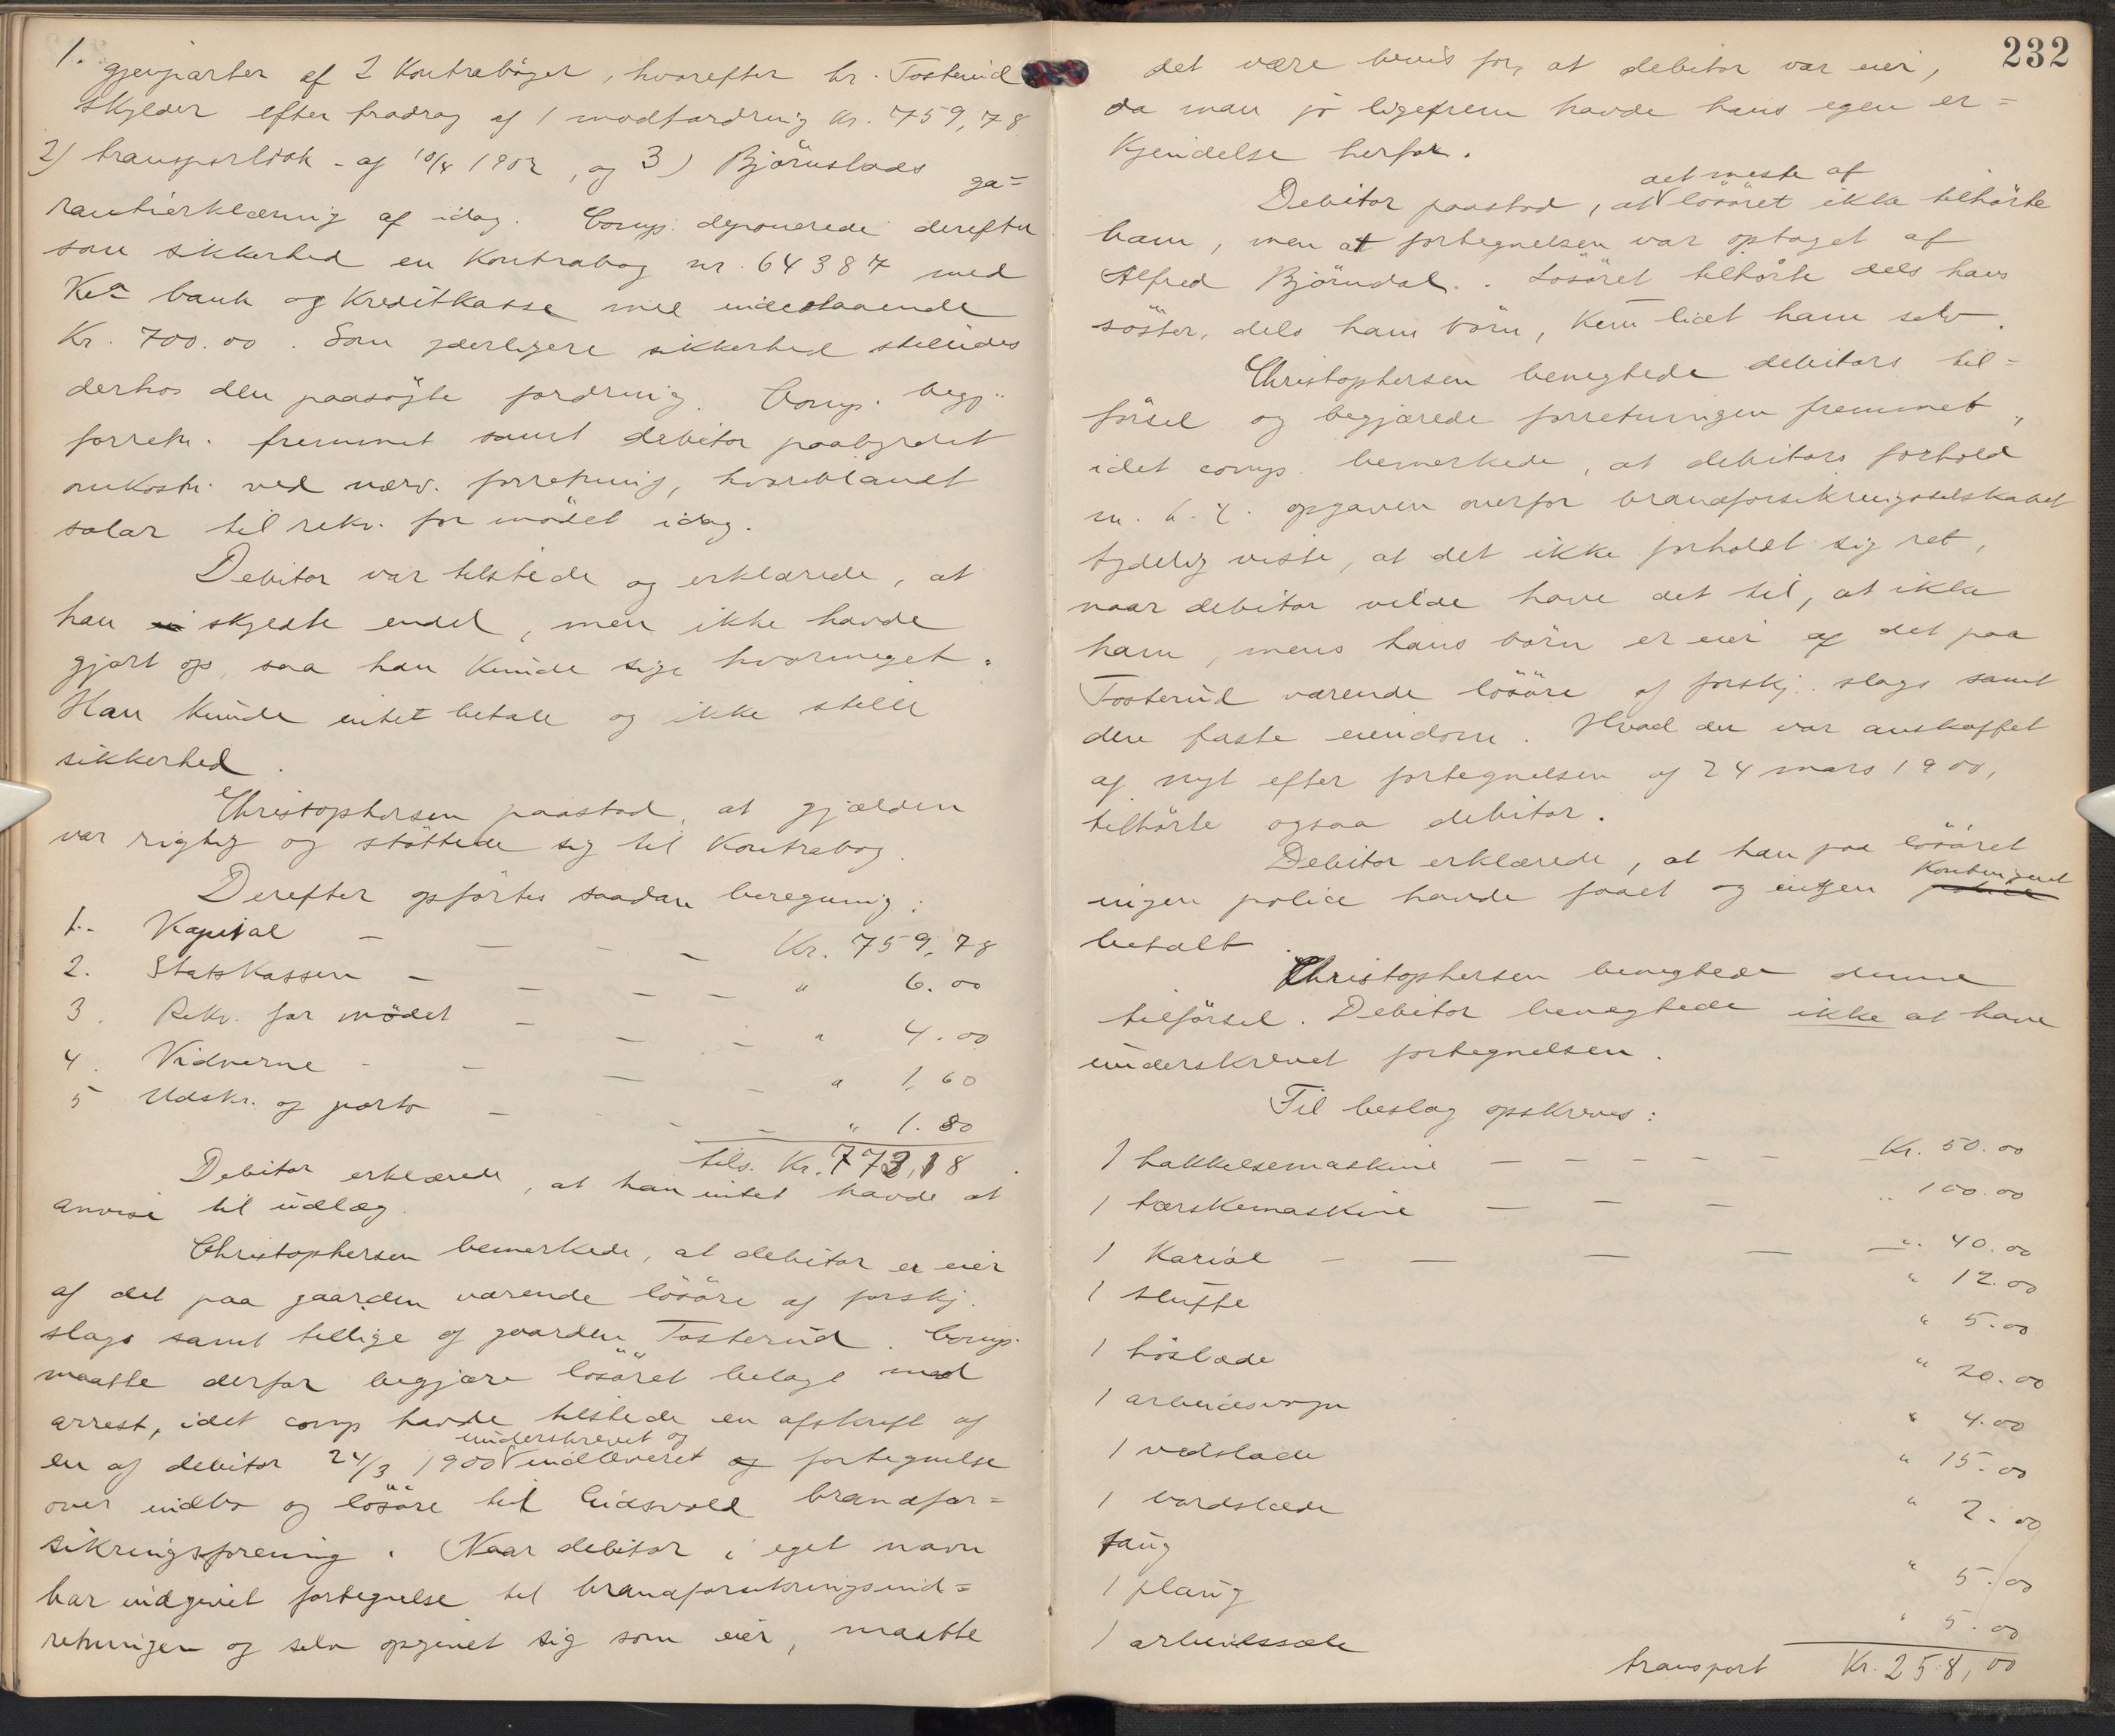 1. gjenparter af 2 Kontrabøger, hvorefter hr. Tosterud
skylder efter fradrag af 1 modfordring Kr. 759,78
2) transportdok. af 10/4 1902, og 3) Björnstads ga=
rantierklæring af idag. Comp. deponerede derefter
som sikkerhed en Kontrabog nr. 64387 med
Kra bank og Kreditkasse med indestaaende
Kr. 700.00. Som yderligere sikkerhed stilledes
derhos den paasögte fordring. Comp. begj.
forretn. fremmet samt debitor paabyrdet
omkostn. ved nærv. forretning, hvoriblandt
salær til rekv. for mödet idag.
Debitor var tilstede og erklærede, at
han skyldte endel, men ikke havde
gjort op, saa han kunde sige hvormeget.
Han kunde intet betale og ikke stille
sikkerhed.
Christophersen paastod, at gjælden
var rigtig og stöttede sig til Kontrabog.
Derefter opförtes saadan beregning:
1. Kapital — — — — Kr. 759,78
2. Statskassen — — — — " 6.00
3. Rekv. for mödet — — — " 4.00
4. Vidnerne — — — — " 1.60
5 Udskr. og porto — — — " 1.80
tils. Kr. 773,18
Debitor erklærede, at han intet havde at
anvise til udlæg.
Christophersen bemerkede, at debitor er eier
af det paa gaarden værende lösöre af forskj.
slags samt tillige af gaarden Tosterud. Comp.
maatte derfor begjære lösöret belagt med
arrest, idet comp havde tilstede en afskrift af
underskrevet og
en af debitor 24/3 1900 V indleveret og fortegnelse
over indbo og lösöre til Eidsvold brandfor=
sikringsforening. Naar debitor i eget navn
har indgivet fortegnelse til brandforsikringsind=
retningen og selv opgivet sig som eier, maatte
232
det være bevis for, at debitor var eier,
da man jo ligefrem havde hans egen er=
kjendelse herfor.
det meste af
Debitor paastod, at V lösöret ikke tilhörte
ham, men at fortegnelsen var optaget af
Alfred Björndal. Lösöret tilhörte dels hans
söster, dels hans börn, kun lidt ham selv.
Christophersen benegtede debitors til=
försel og begjærede forretningen fremmet,
idet comp. bemerkede, at debitors forhold
m. h. t. opgaven overfor brandforsikringsselskabet
tydelig viste, at det ikke forholdt sig ret,
naar debitor vilde have det til, at ikke
ham, mens hans börn er eier af det paa
Tosterud værende lösöre af forskj. slags samt
den faste eiendom. Hvad der var anskaffet
af nyt efter fortegnelsen af 24 mars 1900,
tilhörte ogsaa debitor.
Debitor erklærede, at han paa lösöret
Kontingent
ingen police havde faaet og ingen police
betalt.
Christophersen benegtede denne
tilförsel. Debitor benegtede ikke at have
underskrevet fortegnelsen.
Til beslag opskreves:
1 hakkelsemaskine — — — — — Kr. 50.00
1 tærskemaskine — — — " 100.00
1 Kariol — — — — — " 40.00
1 sluffe " 12.00
1 höslæde " 5.00
1 arbeidsvogn " 20.00
1 vedslæde " 4.00
1 bordslæde " 15.00
Taug " 2.00
1 plaug " 5.00
1 arbeidssæle " 5.00
transport Kr. 258,00